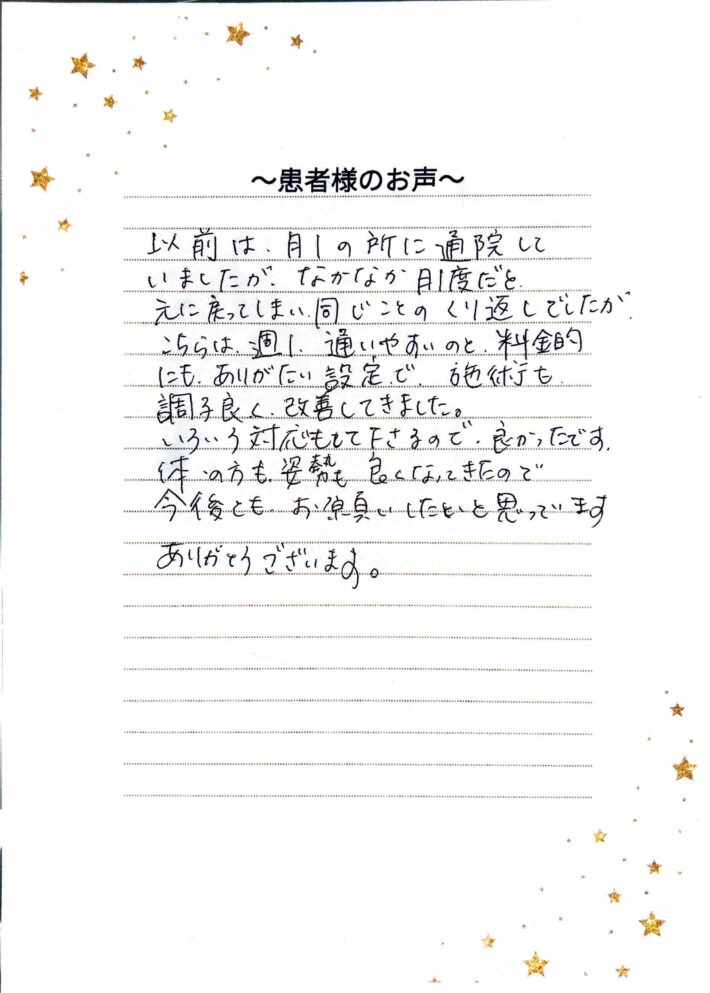 ～患者様のお声～
以前は、月1の所に通院して
いましたが、なかなか月1度だと、
元に戻ってしまい、同じことのくり返しでしたが、
こちらは、週1、通いやすいのと、料金的
にも、ありがたい設定で、施術も、
調子良く、改善してきました。
いろいろ対応もして下さるので、良かったです、
体の方も、姿勢も良くなってきたので
今後とも、お願いしたいと思っています
ありがとうございます。